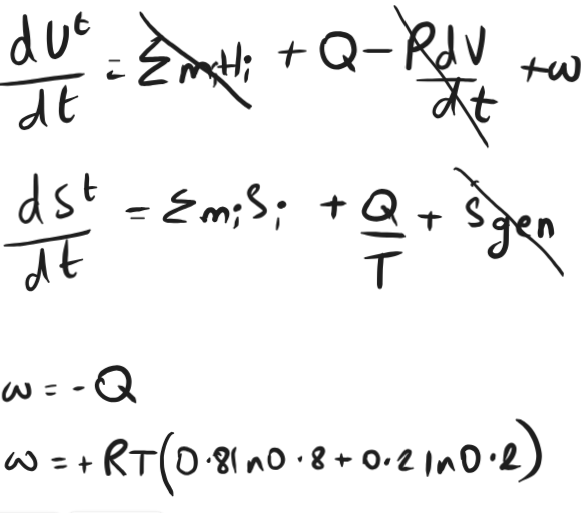 dU^t/dt = Σm_iH_i + Q - PdV/dt + w
dS^t/dt = Σm_iS_i + Q/T + Sgen
w = - Q
w = + RT(0.8ln0.8 + 0.2ln0.2)